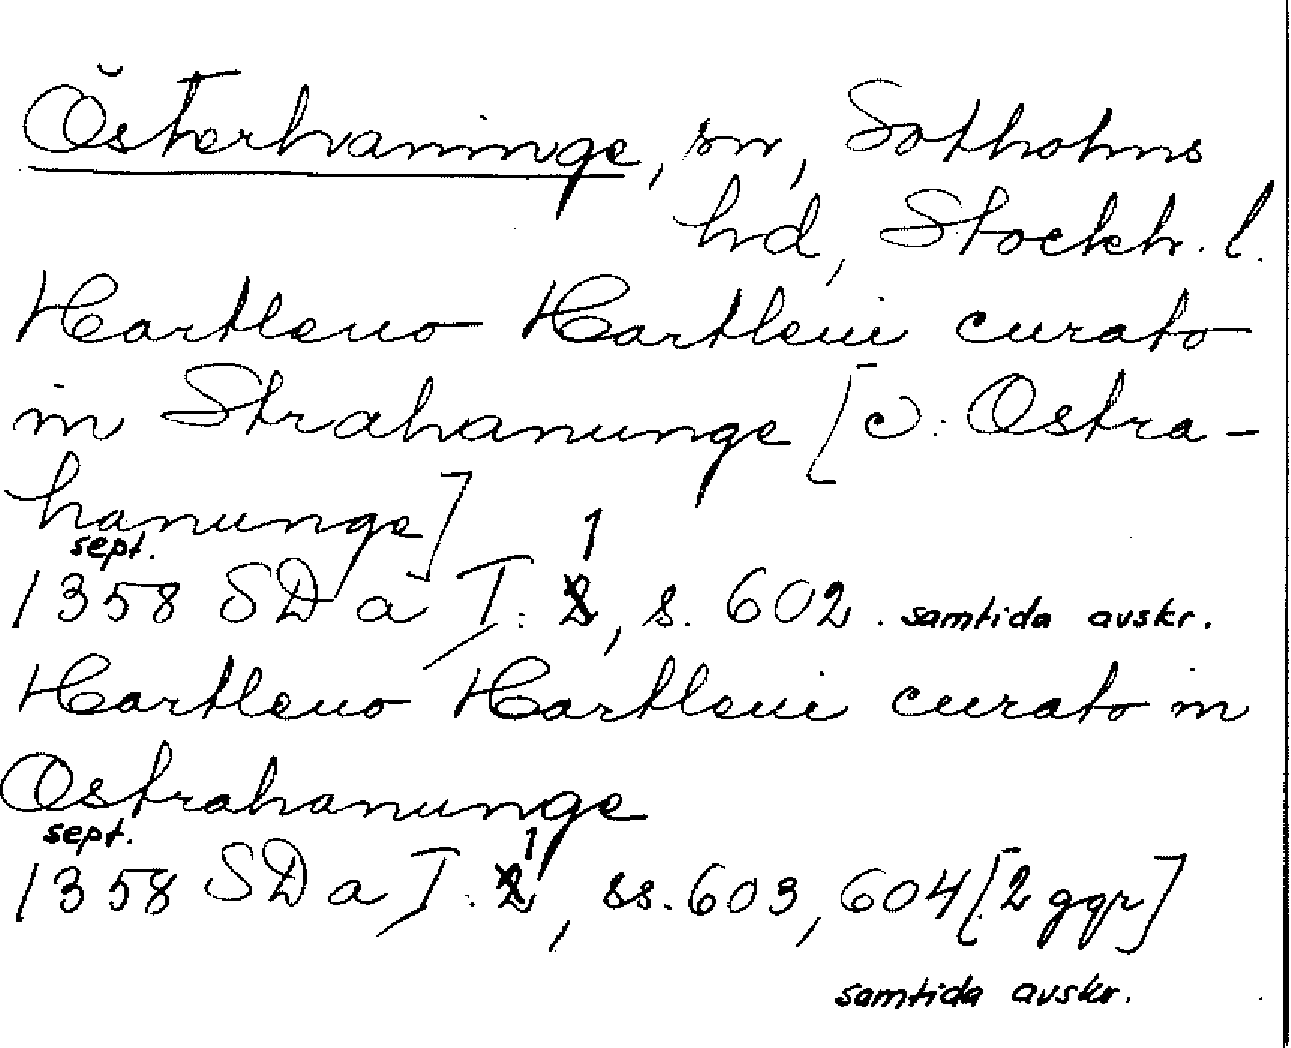 Österhaninge, sn, Sotholms
hd, Stockh. l.
Hartleuo Hartleui curato
in Strahanunge [ɔ: Ostra-
hanunge]
sept. 1
1358 SD a I: 2, s. 602. samtida avskr.
Hartleuo Hartleui curato in
Ostrahanunge
sept. 1
1358 SD a I: 2, ss. 603, 604 [2 ggr]
samtida avskr.